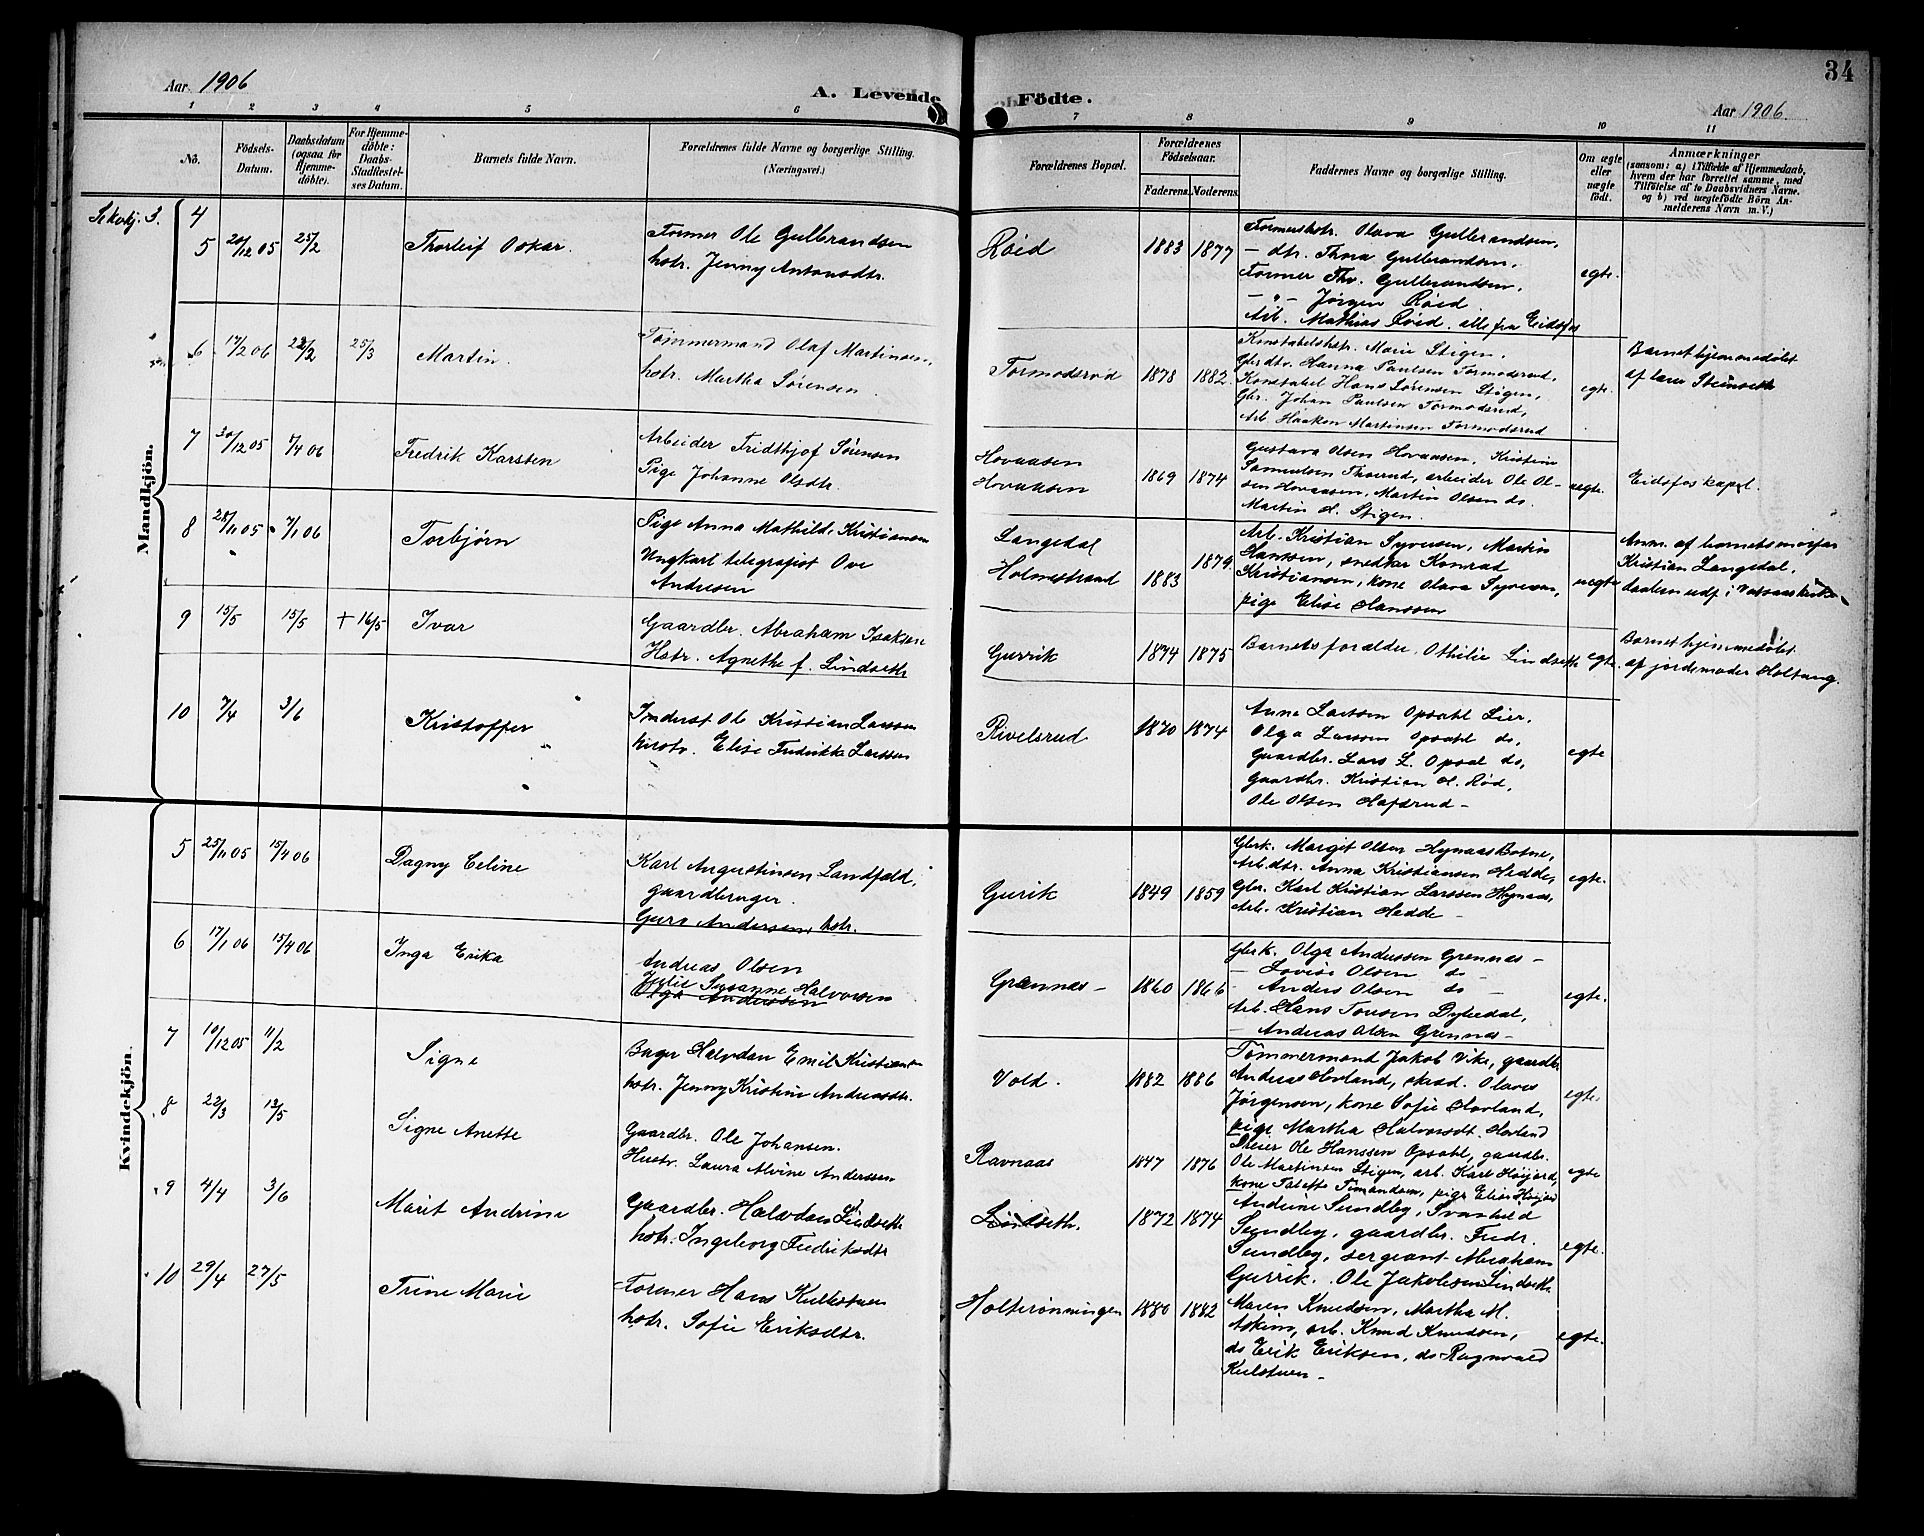 34
Aar 1906
A. Levende Födte.
Aar 1906.
1 2 3 4 5 6 7 8 9 10 11
No.
Fødsels-Datum.
Daabsdatum (ogsaa for Hjemmedøbte).
For Hjemmedøbte: Daabs-Stadfæstelses Datum.
Barnets fulde Navn.
Forældrenes fulde Navne og borgerlige Stilling.
(Næringsvei.)
Forældrenes Bopæl.
Forældrenes Födselsaar.
Faderens. Moderens.
Faddernes Navne og borgerlige Stilling.
Om ægte eller uægte födt.
Anmærkninger
(saasom: a) i Tilfælde af Hjemmedaab,
hvem der har forrettet samme, med
Tilføielse af to Daabsvidners Navne.
og b) ved uægtefödte Börn An-
melderens Navn m. V.)
Mandkjön.
4
5 20/12 05 25/2 Thorleif Oskar.
Former Ole Gulbrandsen
hstr. Jenny Antonsdtr.
Røid 1883 1877
Formershstr. Olava Gulbrandsen,
- dtr. Thora Gulbrandsen,
Former Thv. Gulbrandsen,
- " - Jørgen Røid
Arb. Mathias Røid. alle fra Eidsfos
egte.
6 17/2 06 22/2 25/3 Martin.
Tømmermand Olaf Martinsen,
hstr. Martha Sørensen.
Tormodsrød 1878 1882.
Konstabelshstr. Marie Stigen,
Gbrdtr. Hanna Paulsen Tormodsrud,
Konstabel Hans Sørensen Stigen,
Gbr. Johan Paulsen Tormodsrud,
Arb. Haakon Martinsen Tormodsrud
egte.
Barnet hjemmedøbt
af lærer Steinseth
7 30/12 05 7/4 06 Fredrik Karsten
Arbeider Fridthjof Sørensen
Pige Johanne Olsdtr.
Hovaasen
Hovaasen
1869 1874
Gustava Olsen Hovaasen, Kristine
Samuelsen Thorrud, arbeider Ole Ol-
sen Hovaasen, Martin Olsen do.
Martin d. Stigen.
uegte.
Eidsfos kapel.
8 28/11 05 7/1 06 Torbjørn
Pige Anna Mathilde Kristiansen
Ungkarl telegrafist Ove
Andresen
Langedal
Holmestrand
1883 1879.
Arb. Kristian Syversen, Martin
Hanssen, snedker Konrad
Kristiansen, kone Olava Syversen,
pige Elise Hanssen
uegte
Anm. af barnets morfar
Kristian Langedal,
daaben udf. i Vassaas kirke
9 15/5 15/5 + 16/5 Ivar
Gaardbr. Abraham Isaksen
Hstr. Agnethe f. Lindseth
Gurrik 1874 1875
Barnets forældre, Othilie Lindseth
egte.
Barnet hjemmedøbt
af jordemoder Holtung.
10 7/4 3/6 Kristoffer
Inderst Ole Kristian Larssen
hustr. Elise Fredrikke Larssen
Rivelsrud 1870 1874
Anne Larssen Opsahl Lier,
Olga Larssen Opsahl do,
Gaardbr. Lars L. Opsal do,
Gaardbr. Kristian H. Rød,
Ole Olsen Hafsrud -
egte
Kvindekjön.
5 25/11 05 15/4 06 Dagny Celine
Karl Augustinsen Landfald,
gaardbruger.
Guro Andersen, hstr.
Gurik 1849 1859
Gbrk. Margit Olsen Hynaas Botne,
Arb.dtr. Anna Kristiansen Hedde,
Gbr. Karl Kristian Larssen Hynaas,
Arb. Kristian Hedde -
egte.
6 17/1 06 15/4 06 Inga Erika
Andreas Olsen
Julie Susanne Halvorsen
Olga Anderssen
Grennes - 1860 1866
Gbrk. Olga Anderssen Grennes -
- Lovise Olsen do -
- Anders Olsen do -
Arb. Hans Tonsen Dybedal,
- Andreas Olsen Grennes -
egte.
7 10/12 05 11/2 Signe
Bager Halvdan Emil Kristiansen
hstr. Jenny Kristine Andreasdtr.
Vold. 1882 1886
Tømmermand Jakob Vike, gaardbr.
Andreas Hovland, skrad. Olaves
Jørgensen, kone Sofie Hovland,
pige Martha Halvorsdt. Hovland
egte.
8 22/3 13/5 Signe Anette
Gaardbr. Ole Johansen.
Hustr. Laura Alvine Anderssen
Ravnaas 1847 1876
Ole Hanssen Opsahl, gaardbr.
Ole Martinsen Stigen, arb. Karl Høijord,
egte
9 4/4 3/6 Marit Andrine
Gaardbr. Halvdan Lindseth
hstr. Ingeborg Fredriksdtr
Lindseth. 1872 1874
Andrine Sundby, Svanhild
Sundby, gaardbr. Fredr.
Sundby, sergeant Abraham
Gurrik. Ole Jakobsen Lindseth
egte.
10 29/4 27/5 Trine Marie
Former Hans Kulstuen
hstr. Sofie Eriksdtr.
Holterønningen 1880 1882
Maren Knudsen, Martha M.
Askim, arb. Knud Knudsen,
do Erik Eriksen, do Ragnvald
Kulstuen -
egte.